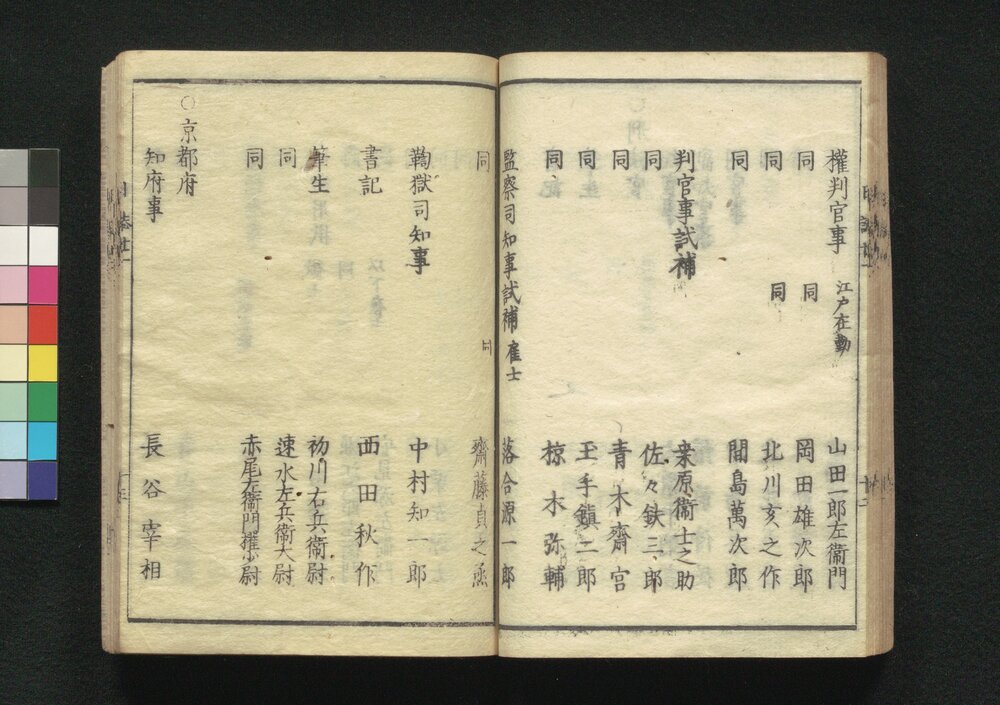 權判官事 江戸在勤 山田一郎左衞門
同 同 岡田雄次郎
同 同 北川亥之作
同 間島萬次郎
判官事試補 桒原衞士之助
同 佐々鉄三郎
同 青木齋宮
同 玉手鎭二郎
同 椋木弥輔
監察司知事試補 雇士 落合源一郎
同 同 齋藤貞之丞
鞫獄司知事 中村知一郎
書記 西田秋作
筆生 初川右兵衞尉
同 速水左兵衞大尉
同 赤尾左衞門權少尉
○京都府
知府事 長谷宰相